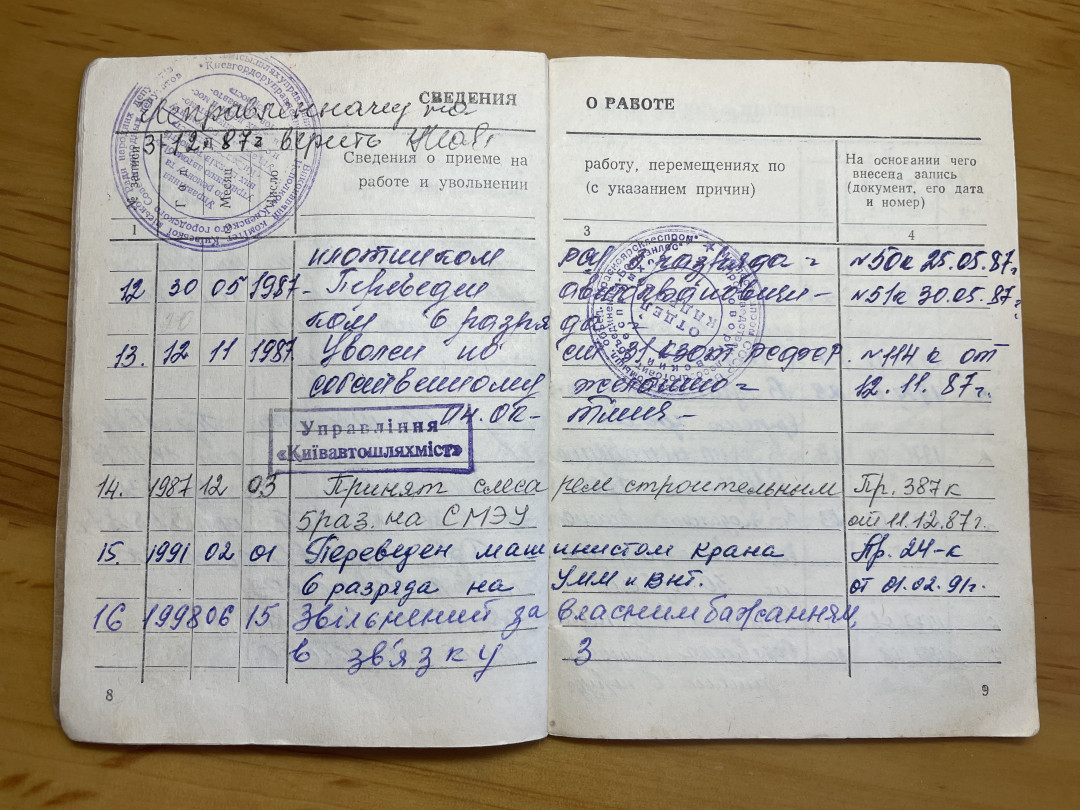 СВЕДЕНИЯ О РАБОТЕ
Исправленному на
3-12-87г верить
№ записи
Год
Месяц
Число
Сведения о приеме на работу, перемещениях по
работе и увольнении (с указанием причин)
На основании чего
внесена запись
(документ, его дата
и номер)
1 2 3 4
плотником разряда №50к 25.05.87г.
12 30 05 1987 Переведен №51к 30.05.87г.
ком 6 разряда
13. 12 11 1987 Уволен по ст 31 КЗоТ РСФСР. №114 к от
собственному желанию 12.11.87г.
Управління
«Київавтошляхміст»
14. 1987 12 03 Принят слесарем строительным Пр. 387к
5 раз. на СМЭУ от 11.12.87г.
15. 1991 02 01 Переведен машинистом крана Пр. 24-к
6 разряда на УММ и ВНТ. от 01.02.91г.
16 1998 06 15 Звільнений за власним бажанням,
в зв'язку з
8 9